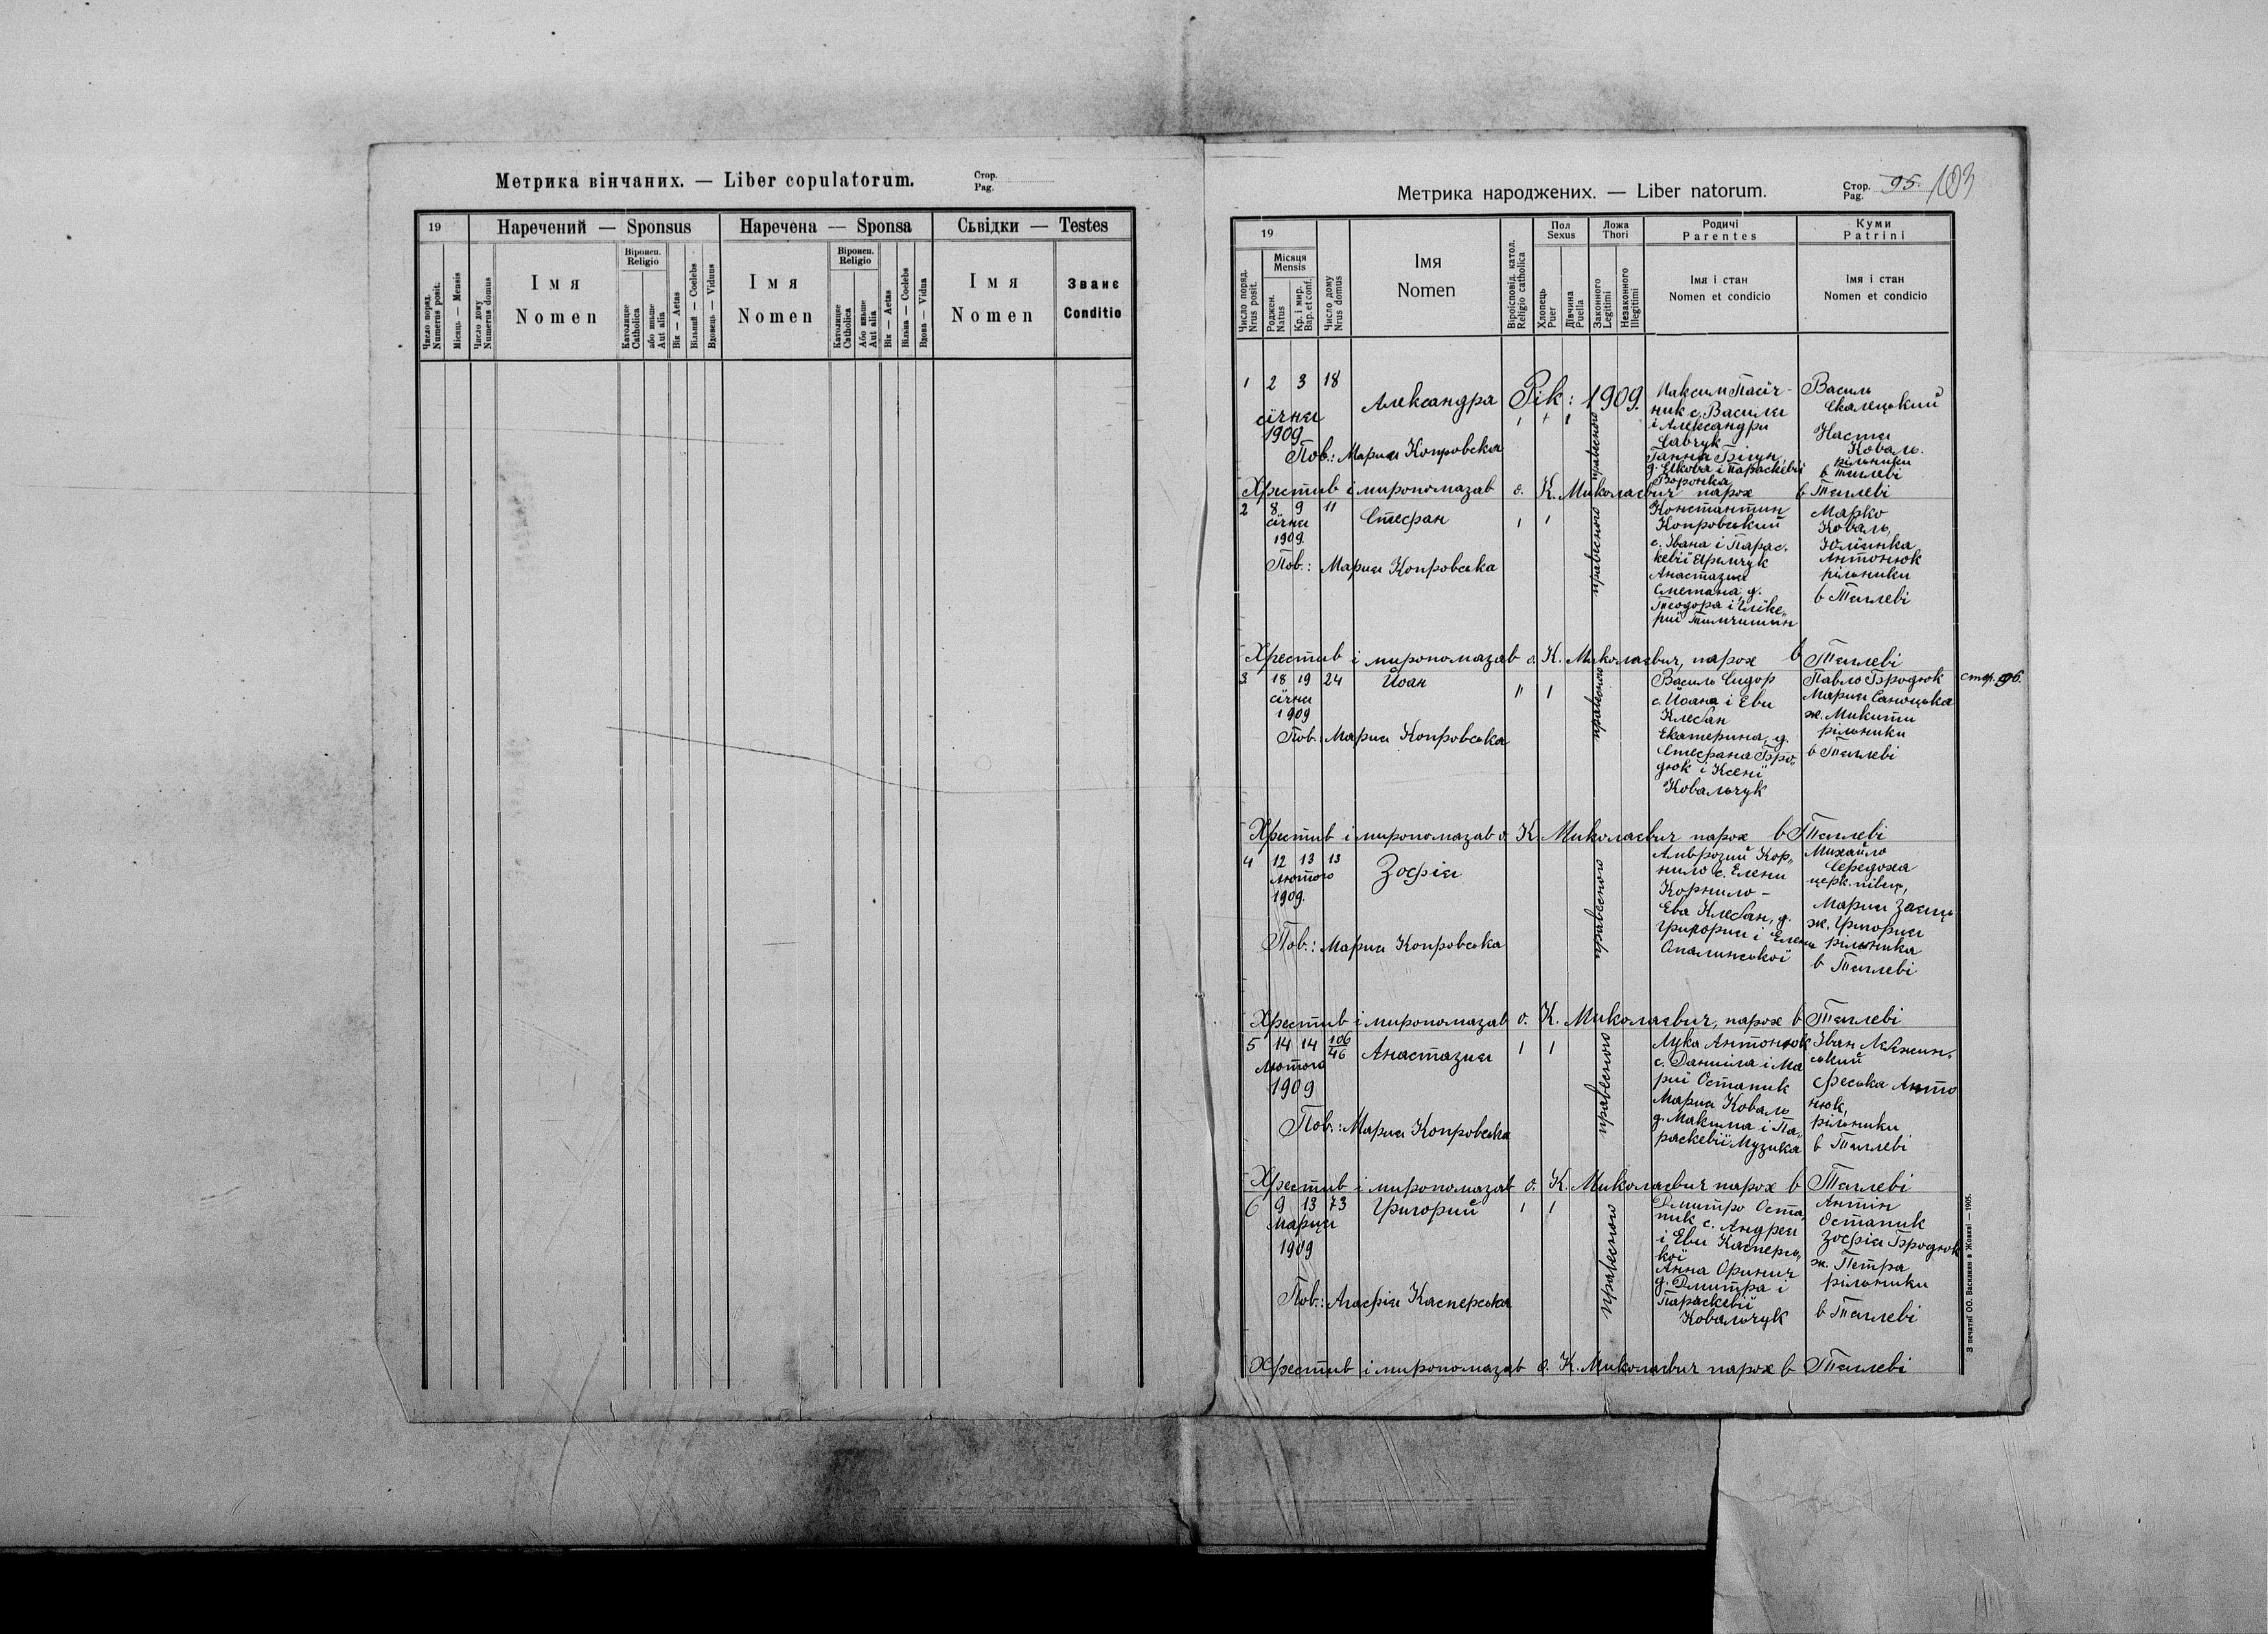 Метрика вінчаних. — Liber copulatorum.
Стор.
Pag.
19
Наречений — Sponsus
Наречена — Sponsa
Сьвідки — Testes
Число поряд.
Numerus posit.
Місяць — Mensis
Число дому
Numerus domus
Імя
Nomen
Віровсп.
Religio
Католицке
Catholica
або иньше
Aut alia
Вік — Aetas
Вільний — Coelebs
Вдовець — Viduus
Імя
Nomen
Віровсп.
Religio
Католицке
Catholica
Або иньше
Aut alia
Вік — Aetas
Вільна — Coelebs
Вдова — Vidua
Імя
Nomen
Званє
Conditio
Метрика народжених. — Liber natorum.
Стор.
Pag.
95.
103
19
Число поряд.
Nrus posit.
Місяця
Mensis
Роджен.
Natus
Кр. і мир.
Bap. et conf.
Число дому
Nrus domus
Імя
Nomen
Віроісповід. катол.
Religio catholica
Пол
Sexus
Хлопець
Puer
Дївчина
Puella
Ложа
Thori
Законного
Legitimi
Незаконного
Illegitimi
Родичі
Parentes
Імя і стан
Nomen et condicio
Куми
Patrini
Імя і стан
Nomen et condicio
Рік: 1909.
1 2 3 18
сїчня
1909
Александра
Пов.: Мария Копровска
правесного
Максим Пасїч-
ник с. Василя
і Александри
Савчук
Ганна Бігун,
д. Якова і Параскевії
Воронка
Василь
Скалецький
Настя
Коваль.
рільники
в Тяглеві
Хрестив і миропомазав о. К. Миколаєвич парох в Тяглеві
2 8 9 11
сїчня
1909.
Стефан
Пов.: Мария Копровська
правесного
Константин
Копровський
с. Івана і Парас.
кевії Яремчук
Анастазия
Сметана, д.
Теодора і Гліке„
риї Тимчишин
Марко
Коваль,
Юлїянка
Антонюк
рільники
в Тяглеві
Хрестив і миропомазав о. К. Миколаєвич, парох в Тяглеві
3 18 19 24
сїчня
1909
Йоан
Пов.: Мария Копровська
правесного
Василь Сидор
с. Йоана і Еви
Клебан
Екатерина, д.
Стефана Бро„
дюк і Ксенї
Ковальчук
Павло Бродюк
Мария Саноцька
ж. Микити
рільники
в Тяглеві
стор. 96.
Хрестив і миропомазав о. К. Миколаєвич парох в Тяглеві
4 12 13 13
лютого
1909.
Зофія
Пов.: Мария Копровська
правесного
Амврозий Кор„
нило с. Елени
Корнило -
Ева Клебан, д.
Григория і Елени
Опалинської
Михайло
Середоха
церк. півець,
Мария Заєць
ж. Григория
рільника
в Тяглеві
Хрестив і миропомазав о. К. Миколаєвич, парох в Тяглеві
5 14 14 106
46
лютого
1909
Анастазия
Пов.: Мария Копровська
правесного
Лука Антонюк
с. Даниїла і Ма
риї Остапик
Мария Коваль
д. Максима і Па„
раскевії Музика
Іван
ський
Феська Анто
нюк,
рільники
в Тяглеві
Хрестив і миропомазав о. К. Миколаєвич парох в Тяглеві
6 9 13 73
марця
1909
Григорий
Пов.: Агафія Касперська
правесного
Дмитро Оста„
пик с. Андрея
і Еви Касперсь„
кої
Анна Оринич
д. Дмитра і
Параскевії
Ковальчук
Антін
Остапик
Зофія Бродюк
ж. Петра
рільники
в Тяглеві
Хрестив і миропомазав о. К. Миколаєвич парох в Тяглеві
З печатнї ОО. Василиян в Жовкві — 1905.